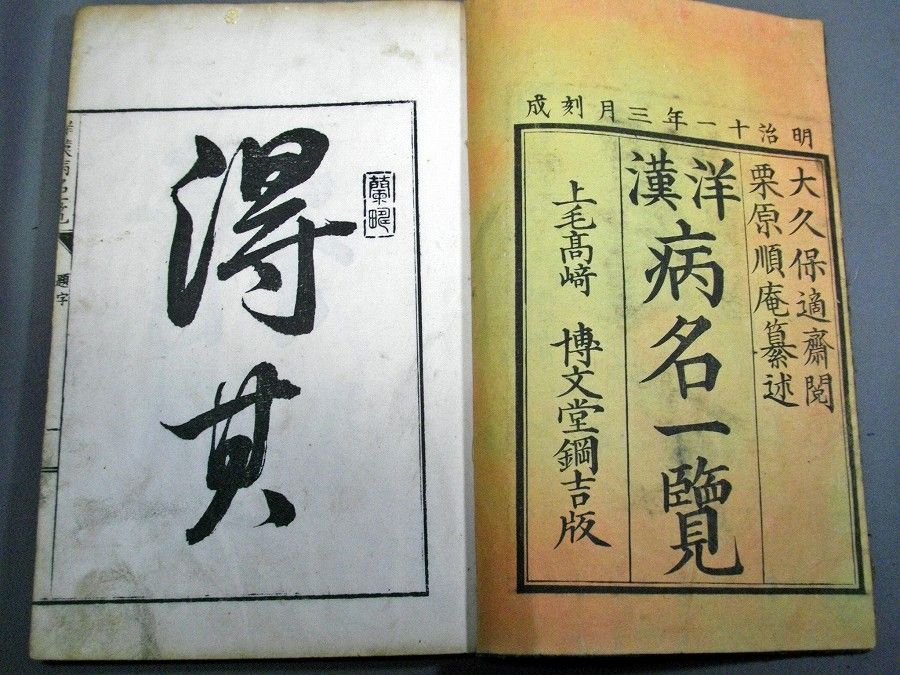 明治十一年三月刻成
大久保適齋閲
栗原順庵纂述
洋漢
病名一覽
上毛高﨑 博文堂鋼吉版
蘭疇
得其
題字
一